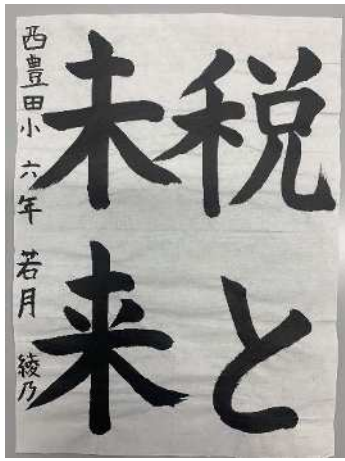 税と
未来
西豊田小 六年 若月 綾乃